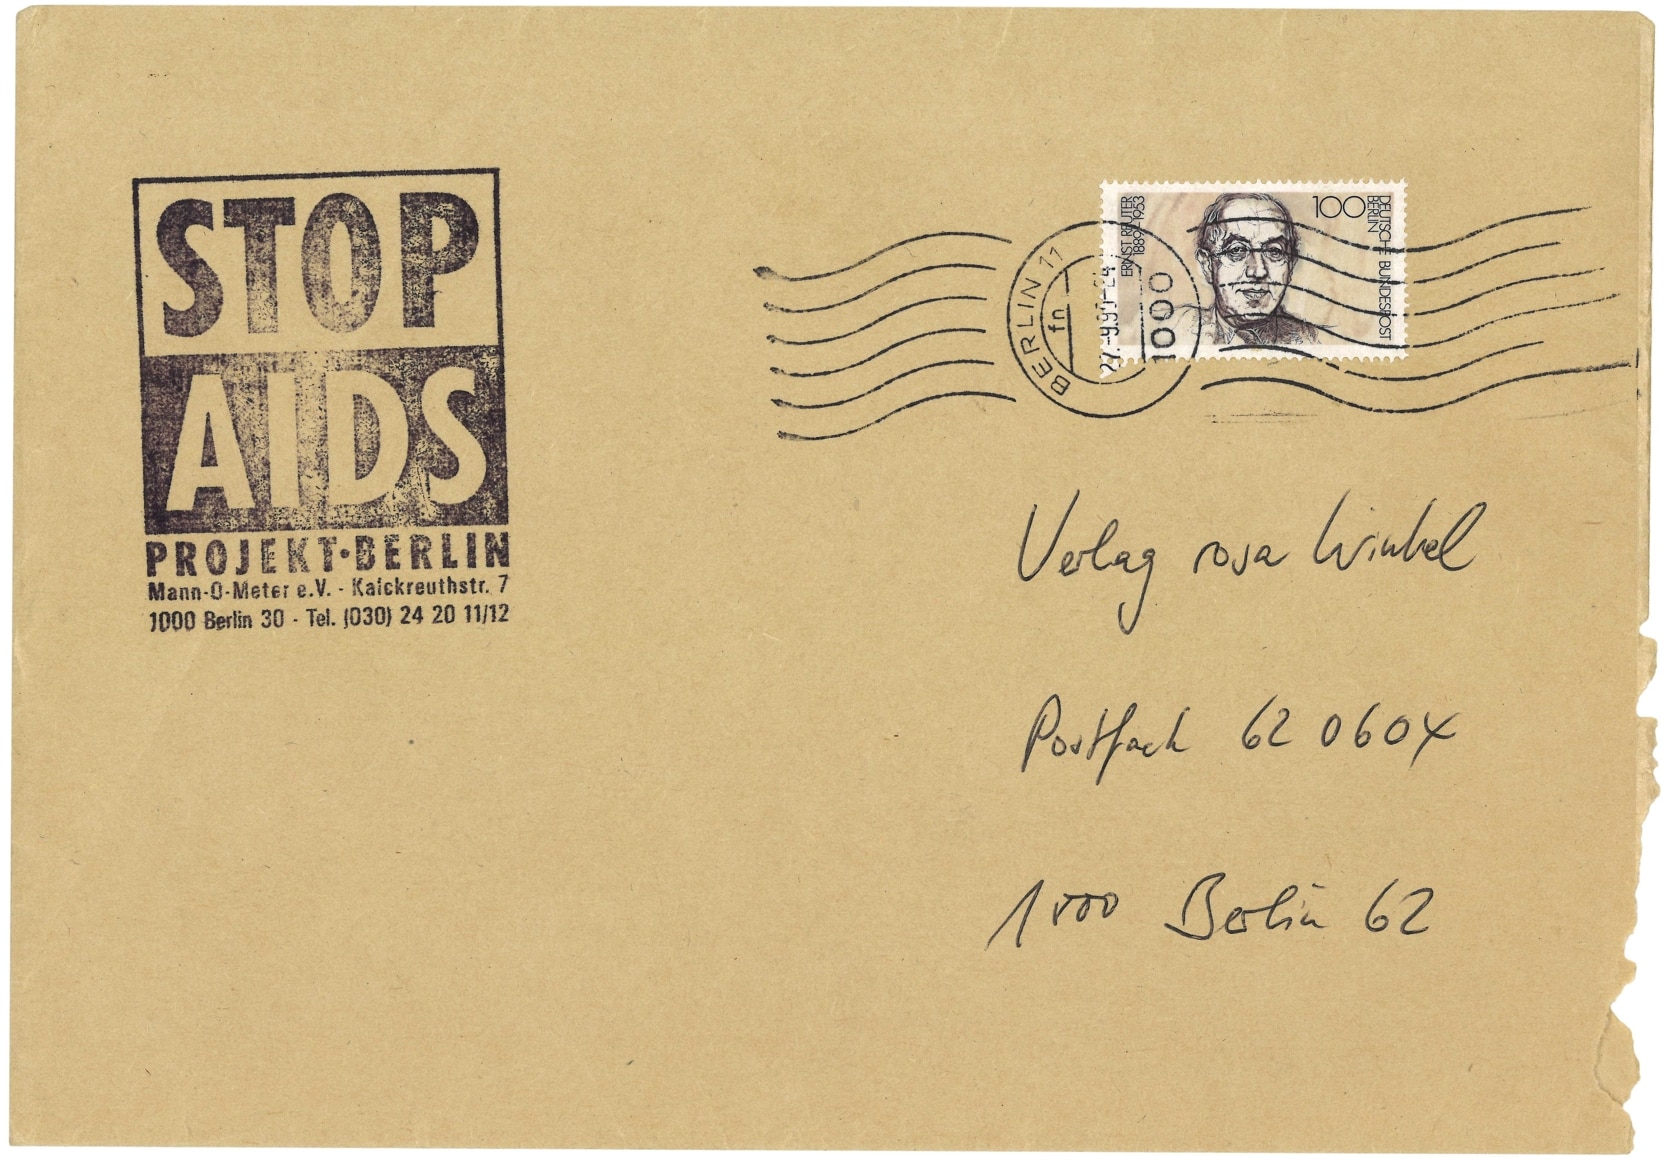 STOP
AIDS
PROJEKT·BERLIN
Mann-O-Meter e.V. - Kalckreuthstr. 7
1000 Berlin 30 - Tel. (030) 24 20 11/12
ERNST REUTER
1889-1953
100
DEUTSCHE BUNDESPOST
BERLIN
BERLIN 11
fn
1000
Verlag rosa Winkel
Postfach 62 0604
1000 Berlin 62